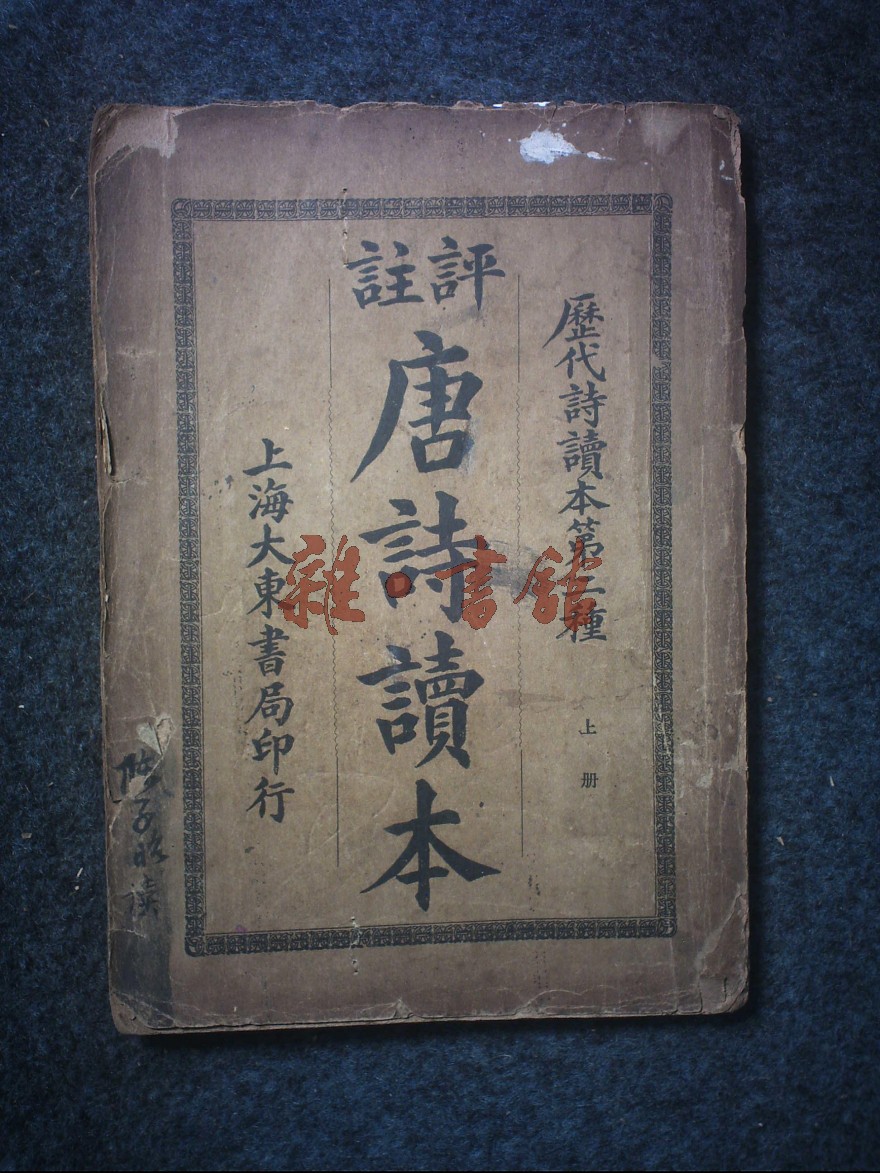 歷代詩讀本第種
上册
評註
唐詩讀本
上海大東書局印行
子读
雜·書館